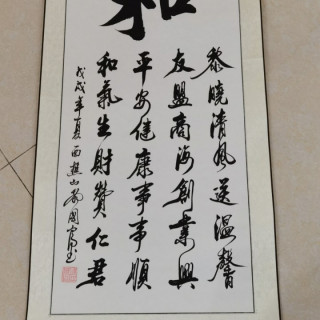 和
黎晓清风送温馨
友盟商海創業興
平安健康事事順
和氣生財赞仁君
戊戌年夏西樵山